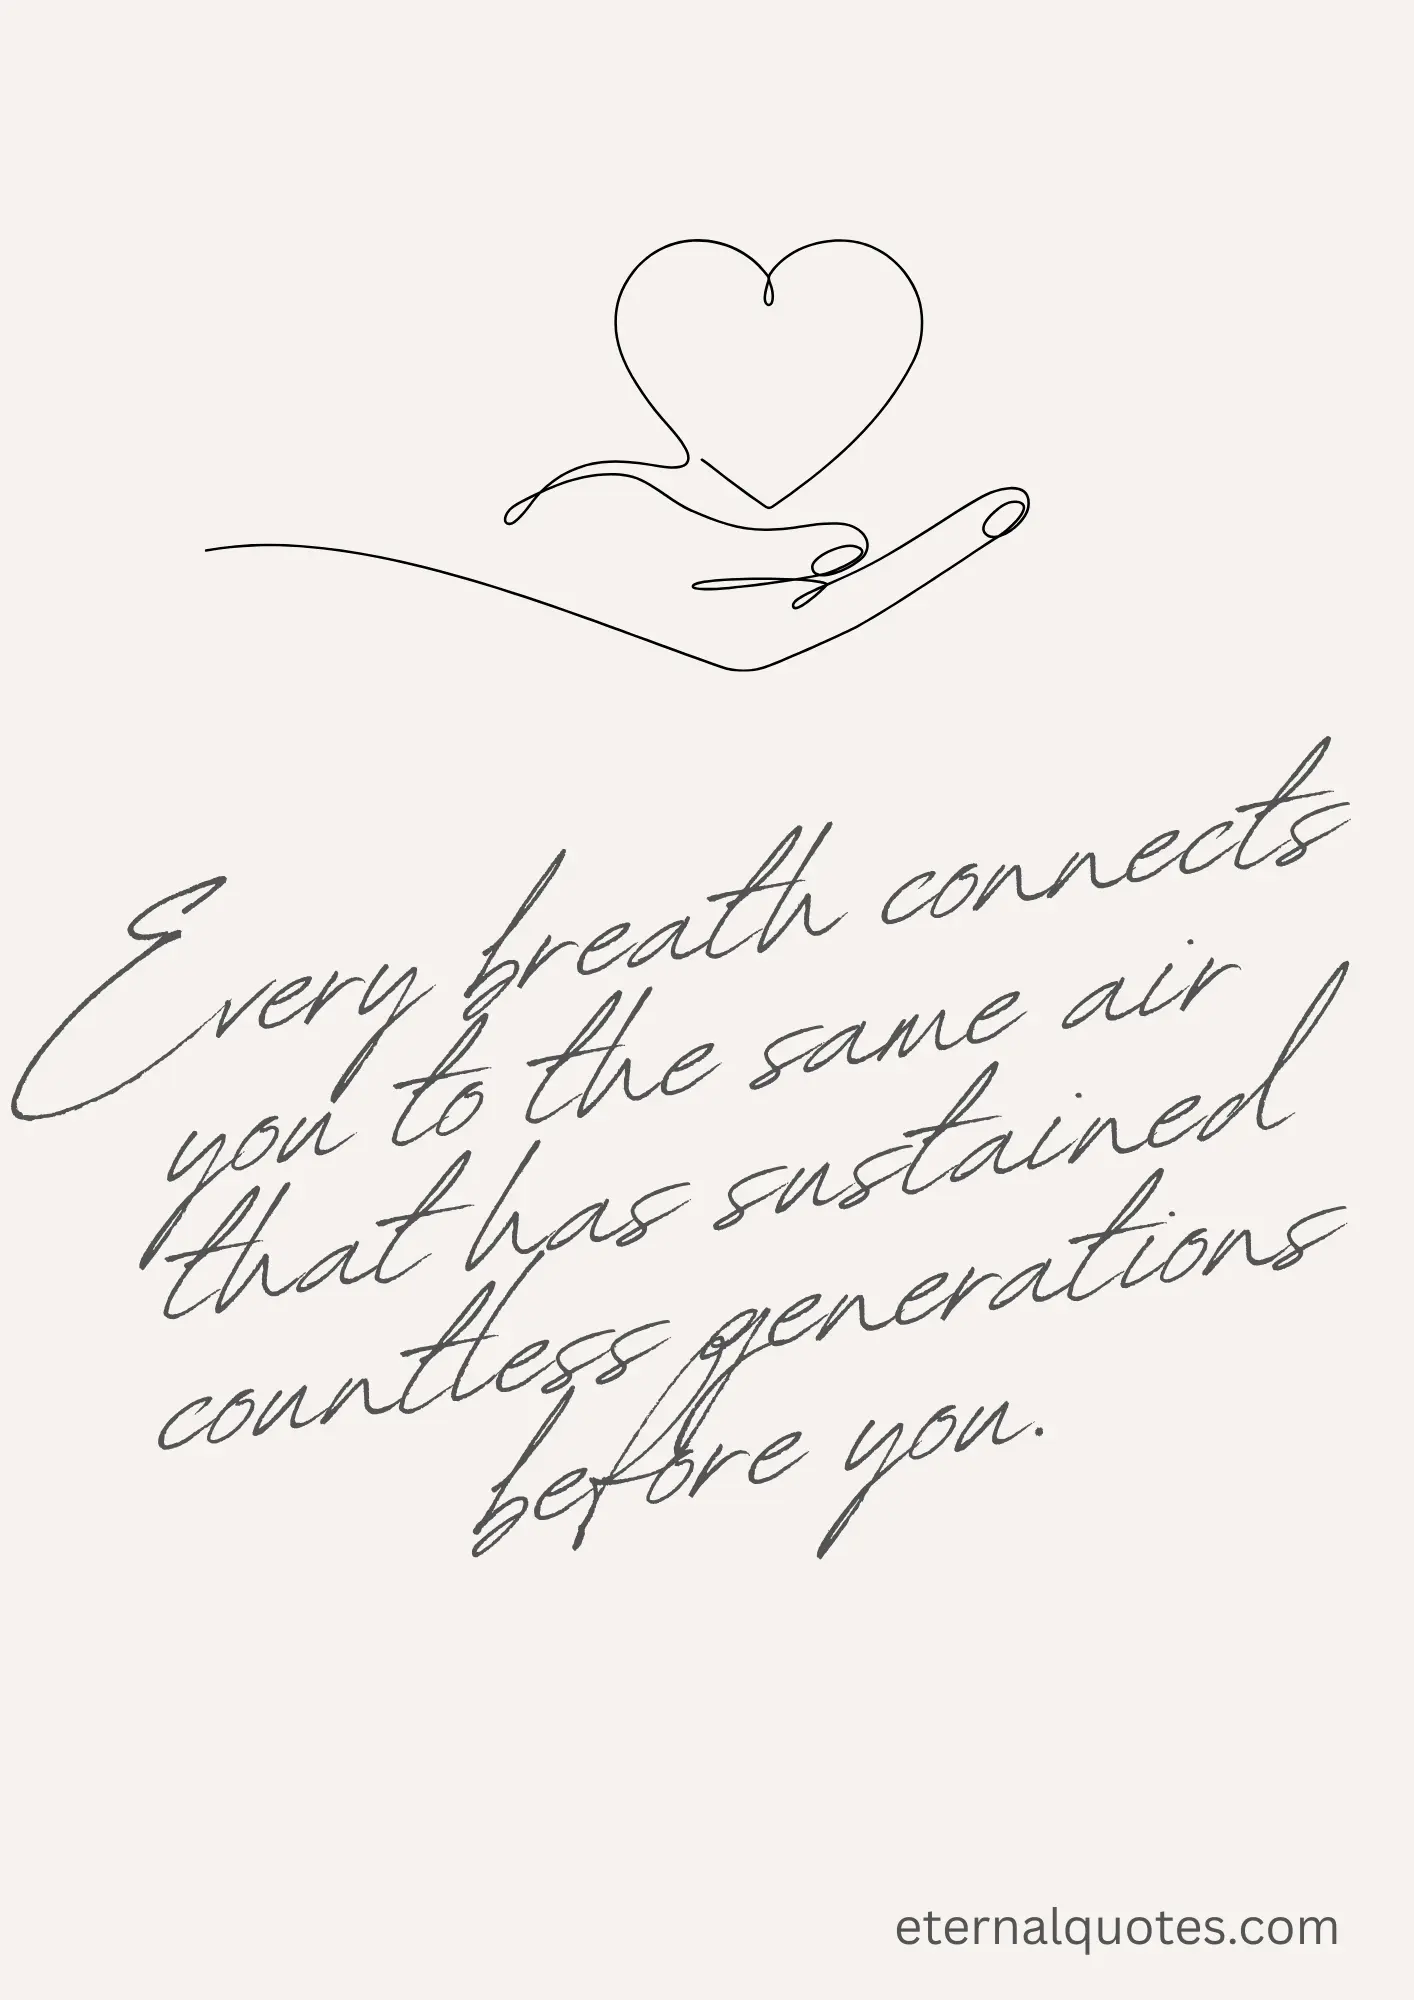 Every breath connects
you to the same air
that has sustained
countless generations
before you.
eternalquotes.com